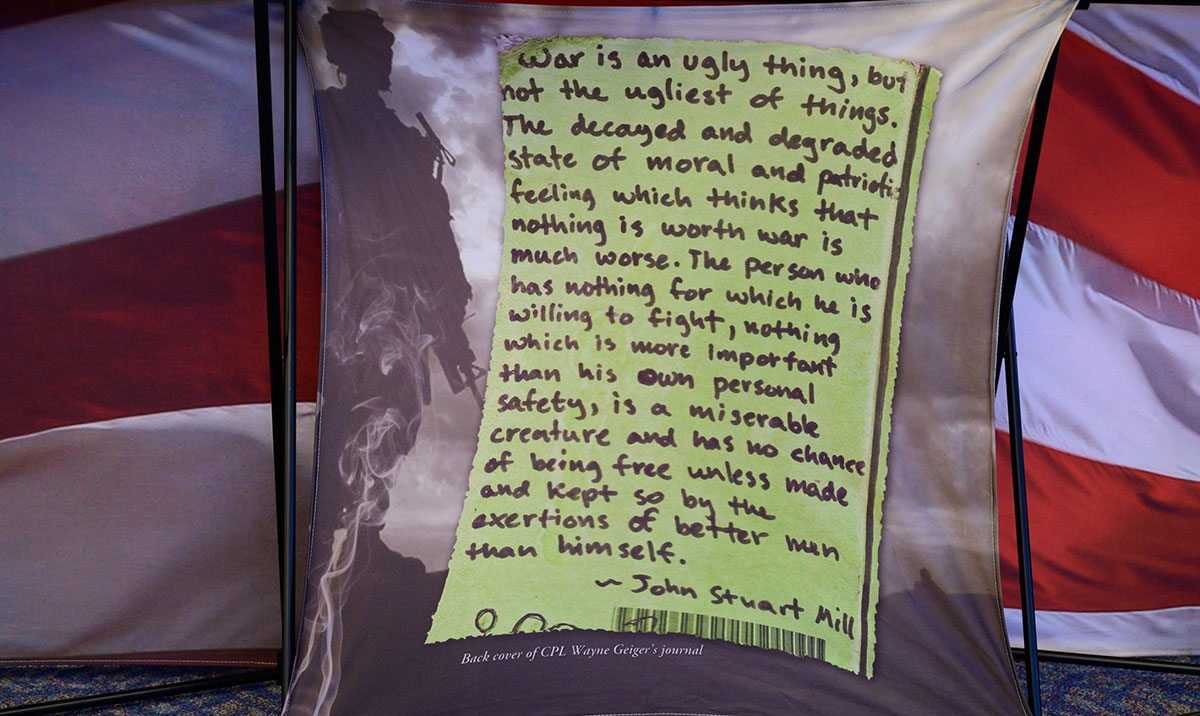 War is an ugly thing, but
not the ugliest of things.
The decayed and degraded
state of moral and patriotic
feeling which thinks that
nothing is worth war is
much worse. The person who
has nothing for which he is
willing to fight, nothing
which is more important
than his own personal
safety, is a miserable
creature and has no chance
of being free unless made
and kept so by the
exertions of better men
than himself.
~ John Stuart Mill
Back cover of CPL Wayne Geiger's journal